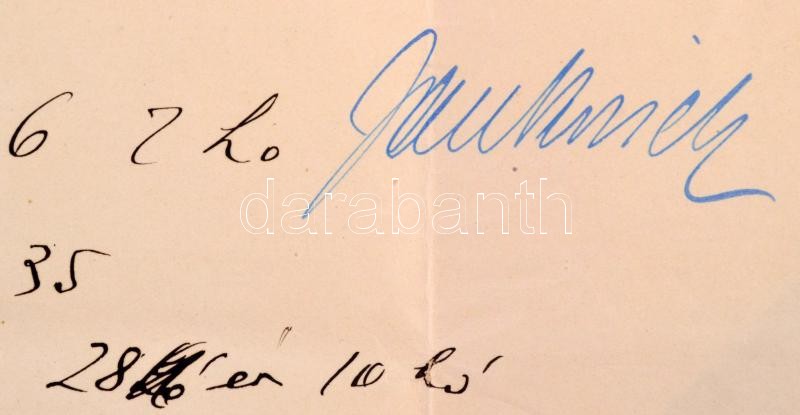 6 7 hó Jankovich
darabanth
35
28 év 10 hó